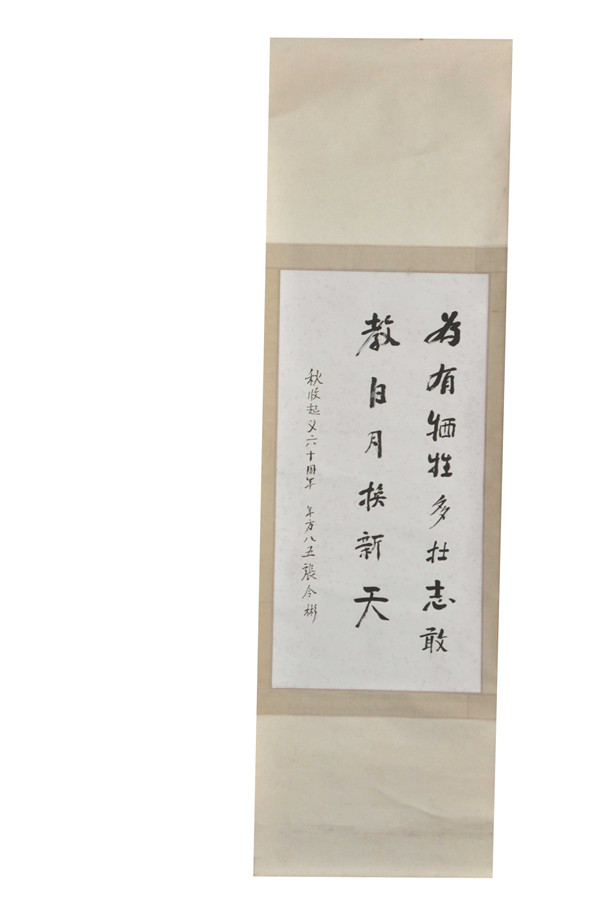 为有牺牲多壮志敢
教日月换新天
秋收起义六十周年 年方八五張令彬